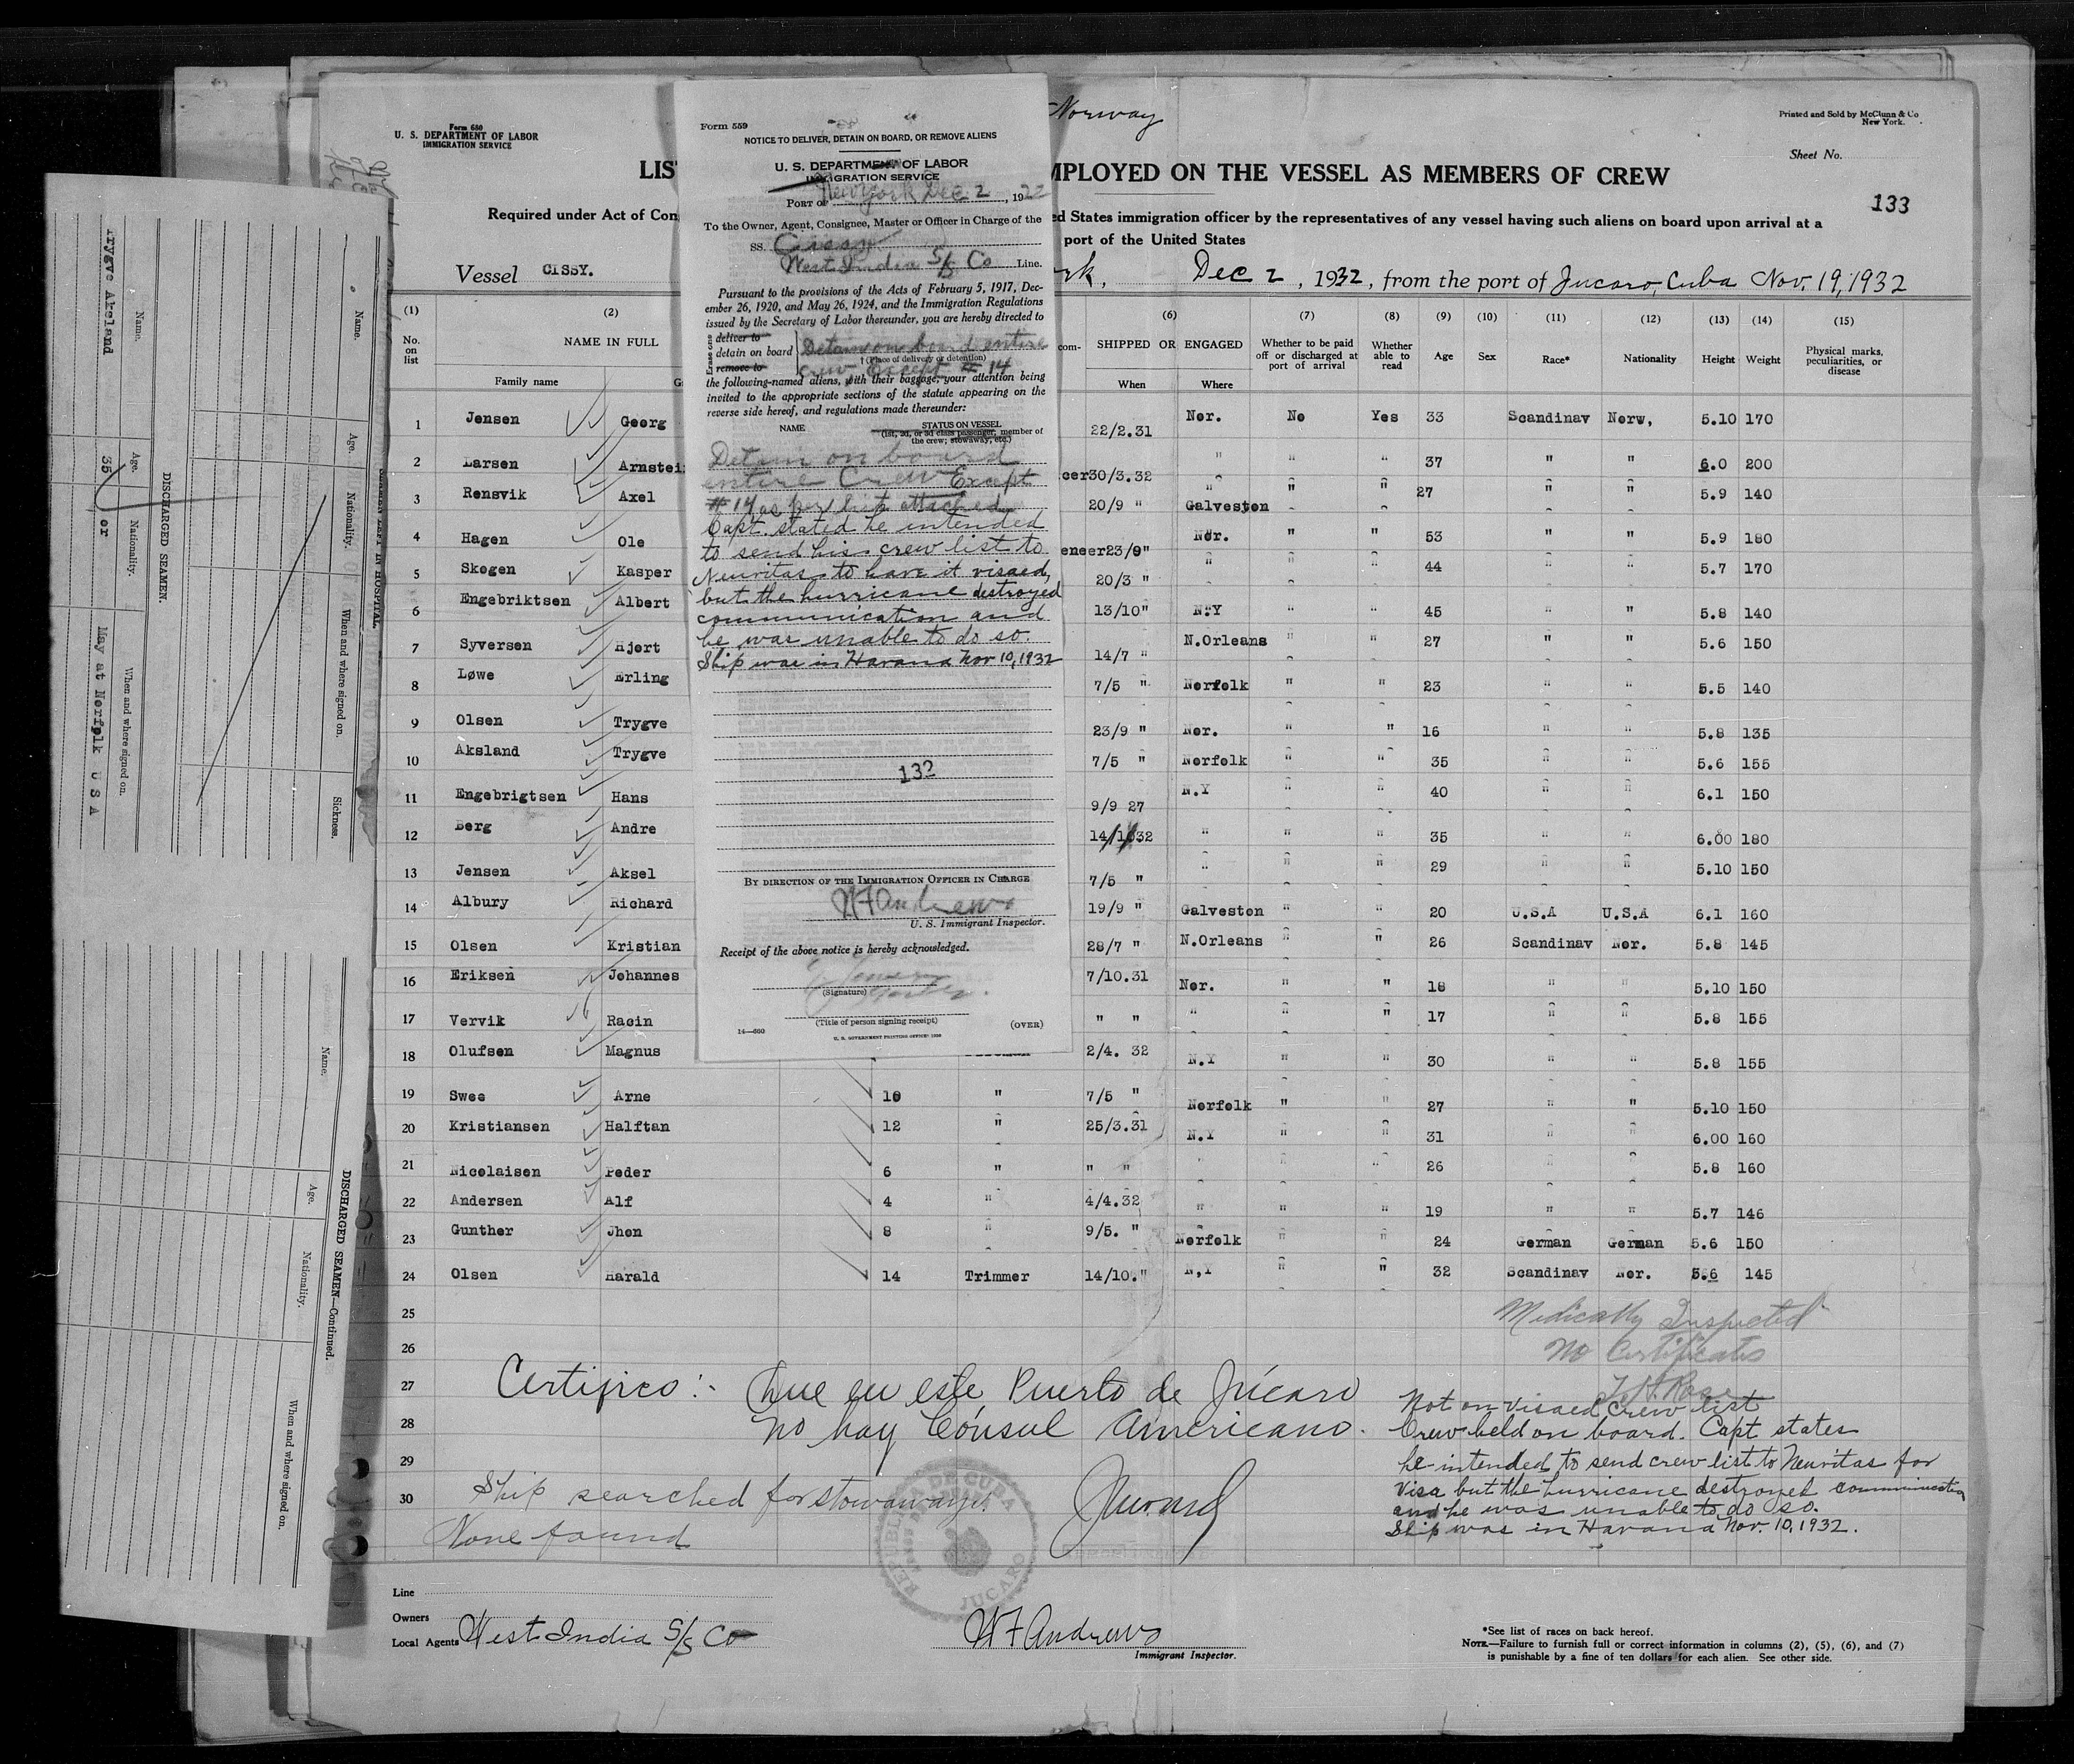 Norway
Printed and Sold by McClunn & Co
New York.
Form 680
U. S. DEPARTMENT OF LABOR
IMMIGRATION SERVICE
Sheet No.
LIS
MPLOYED ON THE VESSEL AS MEMBERS OF CREW
133
Required under Act of Con
ed States immigration officer by the representatives of any vessel having such aliens on board upon arrival at a
port of the United States
Vessel CISSY.
rk, Dec 2, 1932, from the port of Jucaro, Cuba Nov. 19, 1932
Form 559
NOTICE TO DELIVER, DETAIN ON BOARD, OR REMOVE ALIENS
U. S. DEPARTMENT OF LABOR
IMMIGRATION SERVICE
PORT OF New York Dec 2, 1932
To the Owner, Agent, Consignee, Master or Officer in Charge of the
SS. Cissy
West India S/S Co Line.
Pursuant to the provisions of the Acts of February 5, 1917, Dec-
ember 26, 1920, and May 26, 1924, and the Immigration Regulations
issued by the Secretary of Labor thereunder, you are hereby directed to
Erase one
deliver to
detain on board
remove to
Detain on board entire
† (Place of delivery or detention)
crew Except # 14
the following-named aliens, with their baggage; your attention being
invited to the appropriate sections of the statute appearing on the
reverse side hereof, and regulations made thereunder:
NAME
STATUS ON VESSEL
(1st, 2d, or 3d class passenger, member of
the crew; stowaway, etc.)
Detain on board
entire Crew Except
# 14 as per list attached
Capt. stated he intended
to send his crew list to
Neuvitas to have it visaed,
but the hurricane destroyed
communication and
he was unable to do so.
Ship was in Havana Nov 10, 1932
132
BY DIRECTION OF THE IMMIGRATION OFFICER IN CHARGE
W F Andrews
U. S. Immigrant Inspector.
Receipt of the above notice is hereby acknowledged.
(Signature)
(Title of person signing receipt)
14—660
(OVER)
U. S. GOVERNMENT PRINTING OFFICE: 1928
(1) (2) (6) (7) (8) (9) (10) (11) (12) (13) (14) (15)
No. on list
NAME IN FULL
Family name
G
com-
SHIPPED OR ENGAGED
When Where
Whether to be paid off or discharged at port of arrival
Whether able to read
Age Sex Race* Nationality Height Weight
Physical marks, peculiarities, or disease
1 Jensen Georg 22/2.31 Nor. No Yes 33 Scandinav Norw, 5.10 170
2 Larsen Arnstei cer 30/3.32 " " " 37 " " 6.0 200
3 Rensvik Axel 20/9 " Galveston " " 27 " " 5.9 140
4 Hagen Ole eneer 23/9" Nor. " " 53 " " 5.9 180
5 Skogen Kasper 20/3 " " " " 44 " " 5.7 170
6 Engebriktsen Albert 13/10" N.Y " " 45 " " 5.8 140
7 Syversen Hjort 14/7 " N.Orleans " " 27 " " 5.6 150
8 Løwe Erling 7/5 " Norfolk " " 23 " " 5.5 140
9 Olsen Trygve 23/9 " Nor. " " 16 " " 5.8 135
10 Aksland Trygve 7/5 " Norfolk " " 35 " " 5.6 155
11 Engebrigtsen Hans 9/9 27 N.Y " " 40 " " 6.1 150
12 Berg Andre 14/1032 " " " 35 " " 6.00 180
13 Jensen Aksel 7/5 " " " " 29 " " 5.10 150
14 Albury Richard 19/9 " Galveston " " 20 U.S.A U.S.A 6.1 160
15 Olsen Kristian 28/7 " N.Orleans " " 26 Scandinav Nor. 5.8 145
16 Eriksen Johannes 7/10.31 Nor. " " 18 " " 5.10 150
17 Vervik Racin " " " " " 17 " " 5.8 155
18 Olufsen Magnus 2/4. 32 N.Y " " 30 " " 5.8 155
19 Swee Arne 10 " 7/5 " Norfolk " " 27 " " 5.10 150
20 Kristiansen Halftan 12 " 25/3.31 N.Y " " 31 " " 6.00 160
21 Nicolaisen Peder 6 " " " " " " 26 " " 5.8 160
22 Andersen Alf 4 " 4/4.32 " " " 19 " " 5.7 146
23 Gunther Jhon 8 " 9/5. " Norfolk " " 24 German German 5.6 150
24 Olsen Harald 14 Trimmer 14/10." N,Y " " 32 Scandinav Nor. 5.6 145
25
26
27
28
29
30
Medically Inspected
No Certificates
Certifico:- Que en este Puerto de Júcaro
no hay Cónsul Americano.
Not on visaed crew list
Crew held on board. Capt states
he intended to send crew list to Neuvitas for
visa but the hurricane destroyed communication
and he was unable to do so.
Ship was in Havana Nov. 10, 1932.
Ship searched for stowaways.
None found
REPUBLICA DE CUBA
JUCARO
Line
Owners
Local Agents West India S/S Co
W F Andrews
Immigrant Inspector.
*See list of races on back hereof.
NOTE.—Failure to furnish full or correct information in columns (2), (5), (6), and (7)
is punishable by a fine of ten dollars for each alien. See other side.
SEAMEN LEFT IN HOSPITAL.
Name. Age. Nationality. When and where signed on. Sickness.
DISCHARGED SEAMEN.
Name. Age. Nationality. When and where signed on.
Trygve Aksland 35 or May at Norfolk U S A
DISCHARGED SEAMEN—Continued.
Name. Age. Nationality. When and where signed on.